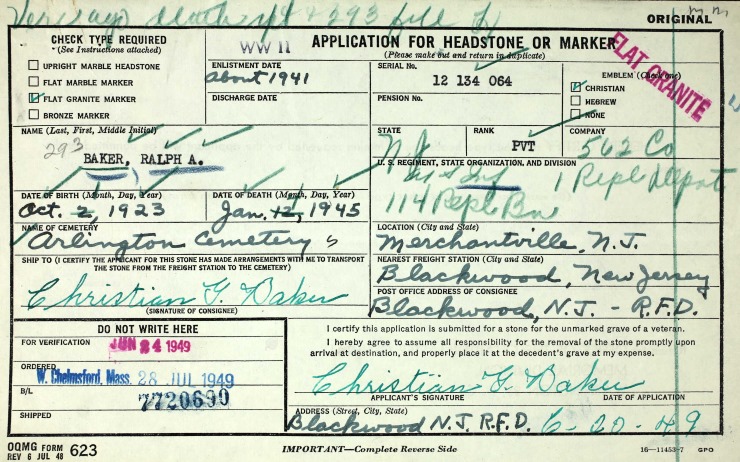 ORIGINAL
CHECK TYPE REQUIRED
(See Instructions attached)
UPRIGHT MARBLE HEADSTONE
FLAT MARBLE MARKER
FLAT GRANITE MARKER
BRONZE MARKER
WW II
APPLICATION FOR HEADSTONE OR MARKER
(Please make out and return in duplicate)
FLAT GRANITE
ENLISTMENT DATE
about 1941
DISCHARGE DATE
SERIAL No.
12 134 064
PENSION No.
EMBLEM (Check one)
CHRISTIAN
HEBREW
NONE
NAME (Last, First, Middle Initial)
293
BAKER, RALPH A.
STATE
N.J.
RANK
PVT
COMPANY
562 Co
U. S. REGIMENT, STATE ORGANIZATION, AND DIVISION
1 Repl Depot
114 Repl Bn
DATE OF BIRTH (Month, Day, Year)
Oct. 2, 1923
DATE OF DEATH (Month, Day, Year)
Jan. 12, 1945
NAME OF CEMETERY
Arlington Cemetery
LOCATION (City and State)
Merchantville, N.J.
SHIP TO (I CERTIFY THE APPLICANT FOR THIS STONE HAS MADE ARRANGEMENTS WITH ME TO TRANSPORT
THE STONE FROM THE FREIGHT STATION TO THE CEMETERY)
Christian G. Baker
(SIGNATURE OF CONSIGNEE)
NEAREST FREIGHT STATION (City and State)
Blackwood, New Jersey
POST OFFICE ADDRESS OF CONSIGNEE
Blackwood, N.J. - R.F.D.
DO NOT WRITE HERE
FOR VERIFICATION
JUN 24 1949
ORDERED
W. Chelmsford, Mass. 28 JUL 1949
B/L
7720690
SHIPPED
I certify this application is submitted for a stone for the unmarked grave of a veteran.
I hereby agree to assume all responsibility for the removal of the stone promptly upon
arrival at destination, and properly place it at the decedent's grave at my expense.
Christian G. Baker
APPLICANT'S SIGNATURE
DATE OF APPLICATION
ADDRESS (Street, City, State)
Blackwood N.J. R.F.D. 6-20-49
OQMG FORM 623
REV 6 JUL 48
IMPORTANT—Complete Reverse Side
16—11453-7 GPO